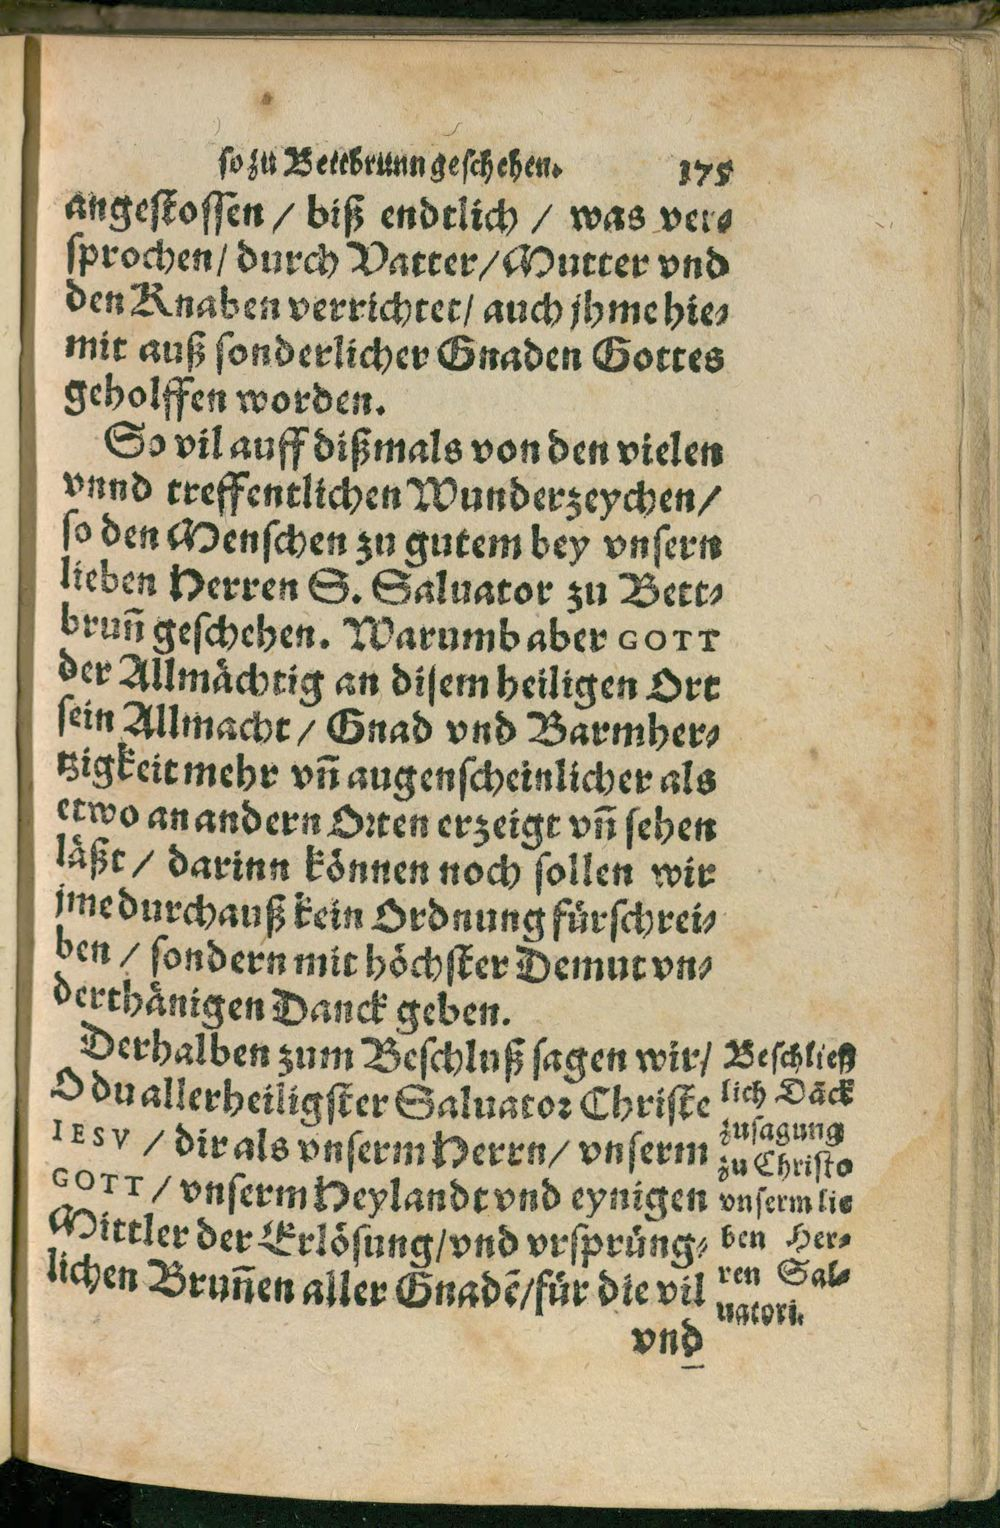 so zu Bettbrunn geschehen. 175
angestossen / biß endtlich / was ver⸗
sprochen / durch Vatter / Mutter vnd
den Knaben verrichtet / auch jhme hie⸗
mit auß sonderlicher Gnaden Gottes
geholffen worden.
So vil auff dißmals von den vielen
vnnd treffentlichen Wunderzeychen /
so den Menschen zu gutem bey vnsern
lieben Herren S. Saluator zu Bett⸗
brun̄ geschehen. Warumb aber GOTT
der Allmächtig an disem heiligen Ort
sein Allmacht / Gnad vnd Barmher⸗
tzigkeit mehr vn̄ augenscheinlicher als
etwo an andern Orten erzeigt vn̄ sehen
läßt / darinn können noch sollen wir
jme durchauß kein Ordnung fürschrei⸗
ben / sondern mit höchster Demut vn⸗
derthänigen Danck geben.
Derhalben zum Beschluß sagen wir /
O du allerheiligster Saluator Christe
IESV / dir als vnserm Herrn / vnserm
GOTT / vnserm Heylandt vnd eynigen
Mittler der Erlösung / vnd vrsprüng⸗
lichen Brun̄en aller Gnadē / für die vil
vnd
Beschließ
lich Dāck
zusagung
zu Christo
vnserm lie
ben Her⸗
ren Sal⸗
uatori.